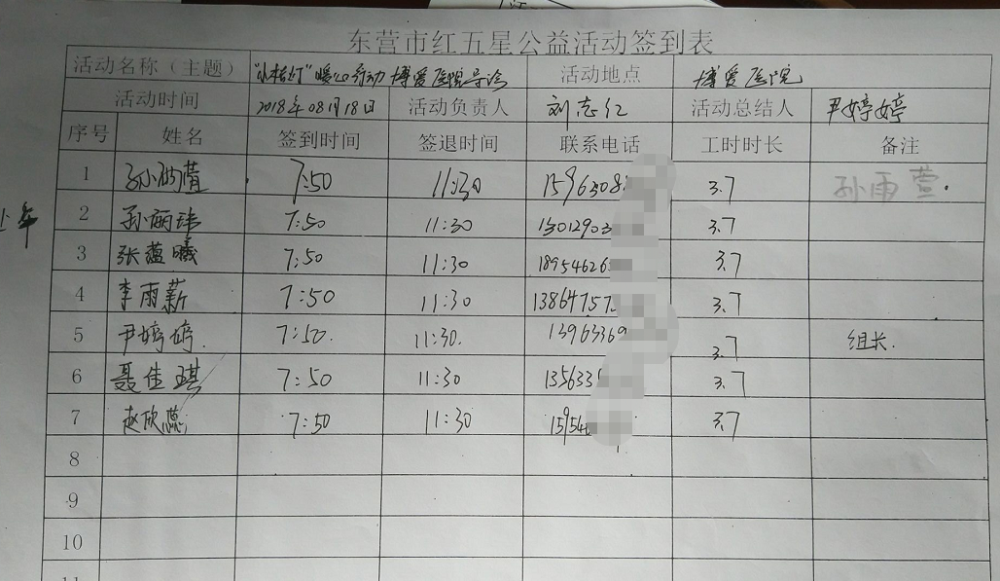 东营市红五星公益活动签到表
活动名称（主题） "小桔灯"暖心行动 博爱医院导诊 活动地点 博爱医院
活动时间 2018年08月18日 活动负责人 刘志红 活动总结人 尹婷婷
序号 姓名 签到时间 签退时间 联系电话 工时时长 备注
1 7:50 11:30 1596308 3.7 孙雨萱.
上午
2 孙丽玮 7:50 11:30 15012903 3.7
3 张蕴曦 7:50 11:30 18954626 3.7
4 李雨薪 7:50 11:30 13864757 3.7
5 尹婷婷. 7:50. 11:30. 13963369 3.7 组长.
6 聂佳琪 7:50 11:30 135633 3.7
7 赵欣蕊 7:50 11:30 15954 3.7
8
9
10
11